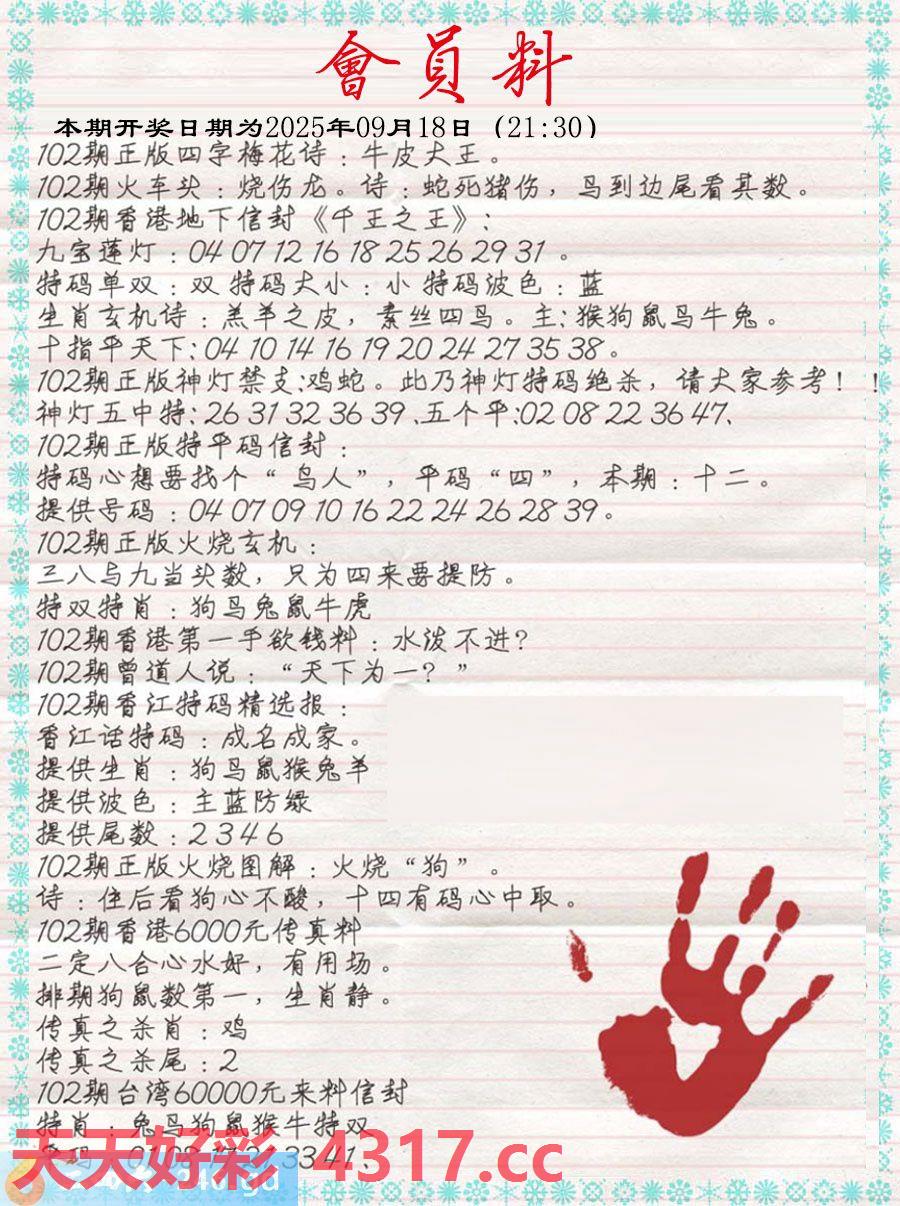 會員料
本期开奖日期为2025年09月18日（21:30）
102期正版四字梅花诗：牛皮大王。
102期火车头：烧伤龙。诗：蛇死猪伤，鸟到边尾看其数。
102期香港地下信封《千王之王》：
九宝莲灯：04 07 12 16 18 25 26 29 31 。
特码单双：双 特码大小：小 特码波色：蓝
生肖玄机诗：羔羊之皮，素丝四鸟。主：猴狗鼠鸟牛兔。
十指平天下：04 10 14 16 19 20 24 27 35 38。
102期正版神灯禁支:鸡蛇。此乃神灯特码绝杀，请大家参考！！
神灯五中特：26 31 32 36 39 .五个平:02 08 22 36 47、
102期正版特平码信封：
特码心想要找个“鸟人”，平码“四”，本期：十二。
提供号码：04 07 09 10 16 22 24 26 28 39。
102期正版火烧玄机：
三八与九当头数，只为四来要提防。
特双特肖：狗鸟兔鼠牛虎
102期香港第一手欲钱料：水泼不进？
102期曾道人说：“天下为一？”
102期香江特码精选报：
香江话特码：成名成家。
提供生肖：狗鸟鼠猴兔羊
提供波色：主蓝防绿
提供尾数：2 3 4 6
102期正版火烧图解：火烧“狗”。
诗：住后看狗心不酸，十四有码心中取。
102期香港6000元传真料
二定八合心水好，有用场。
排期狗鼠数第一，生肖静。
传真之杀肖：鸡
传真之杀尾：2
102期台湾60000元来料信封
特肖：兔鸟狗鼠猴牛特双
天天好彩 4317.cc